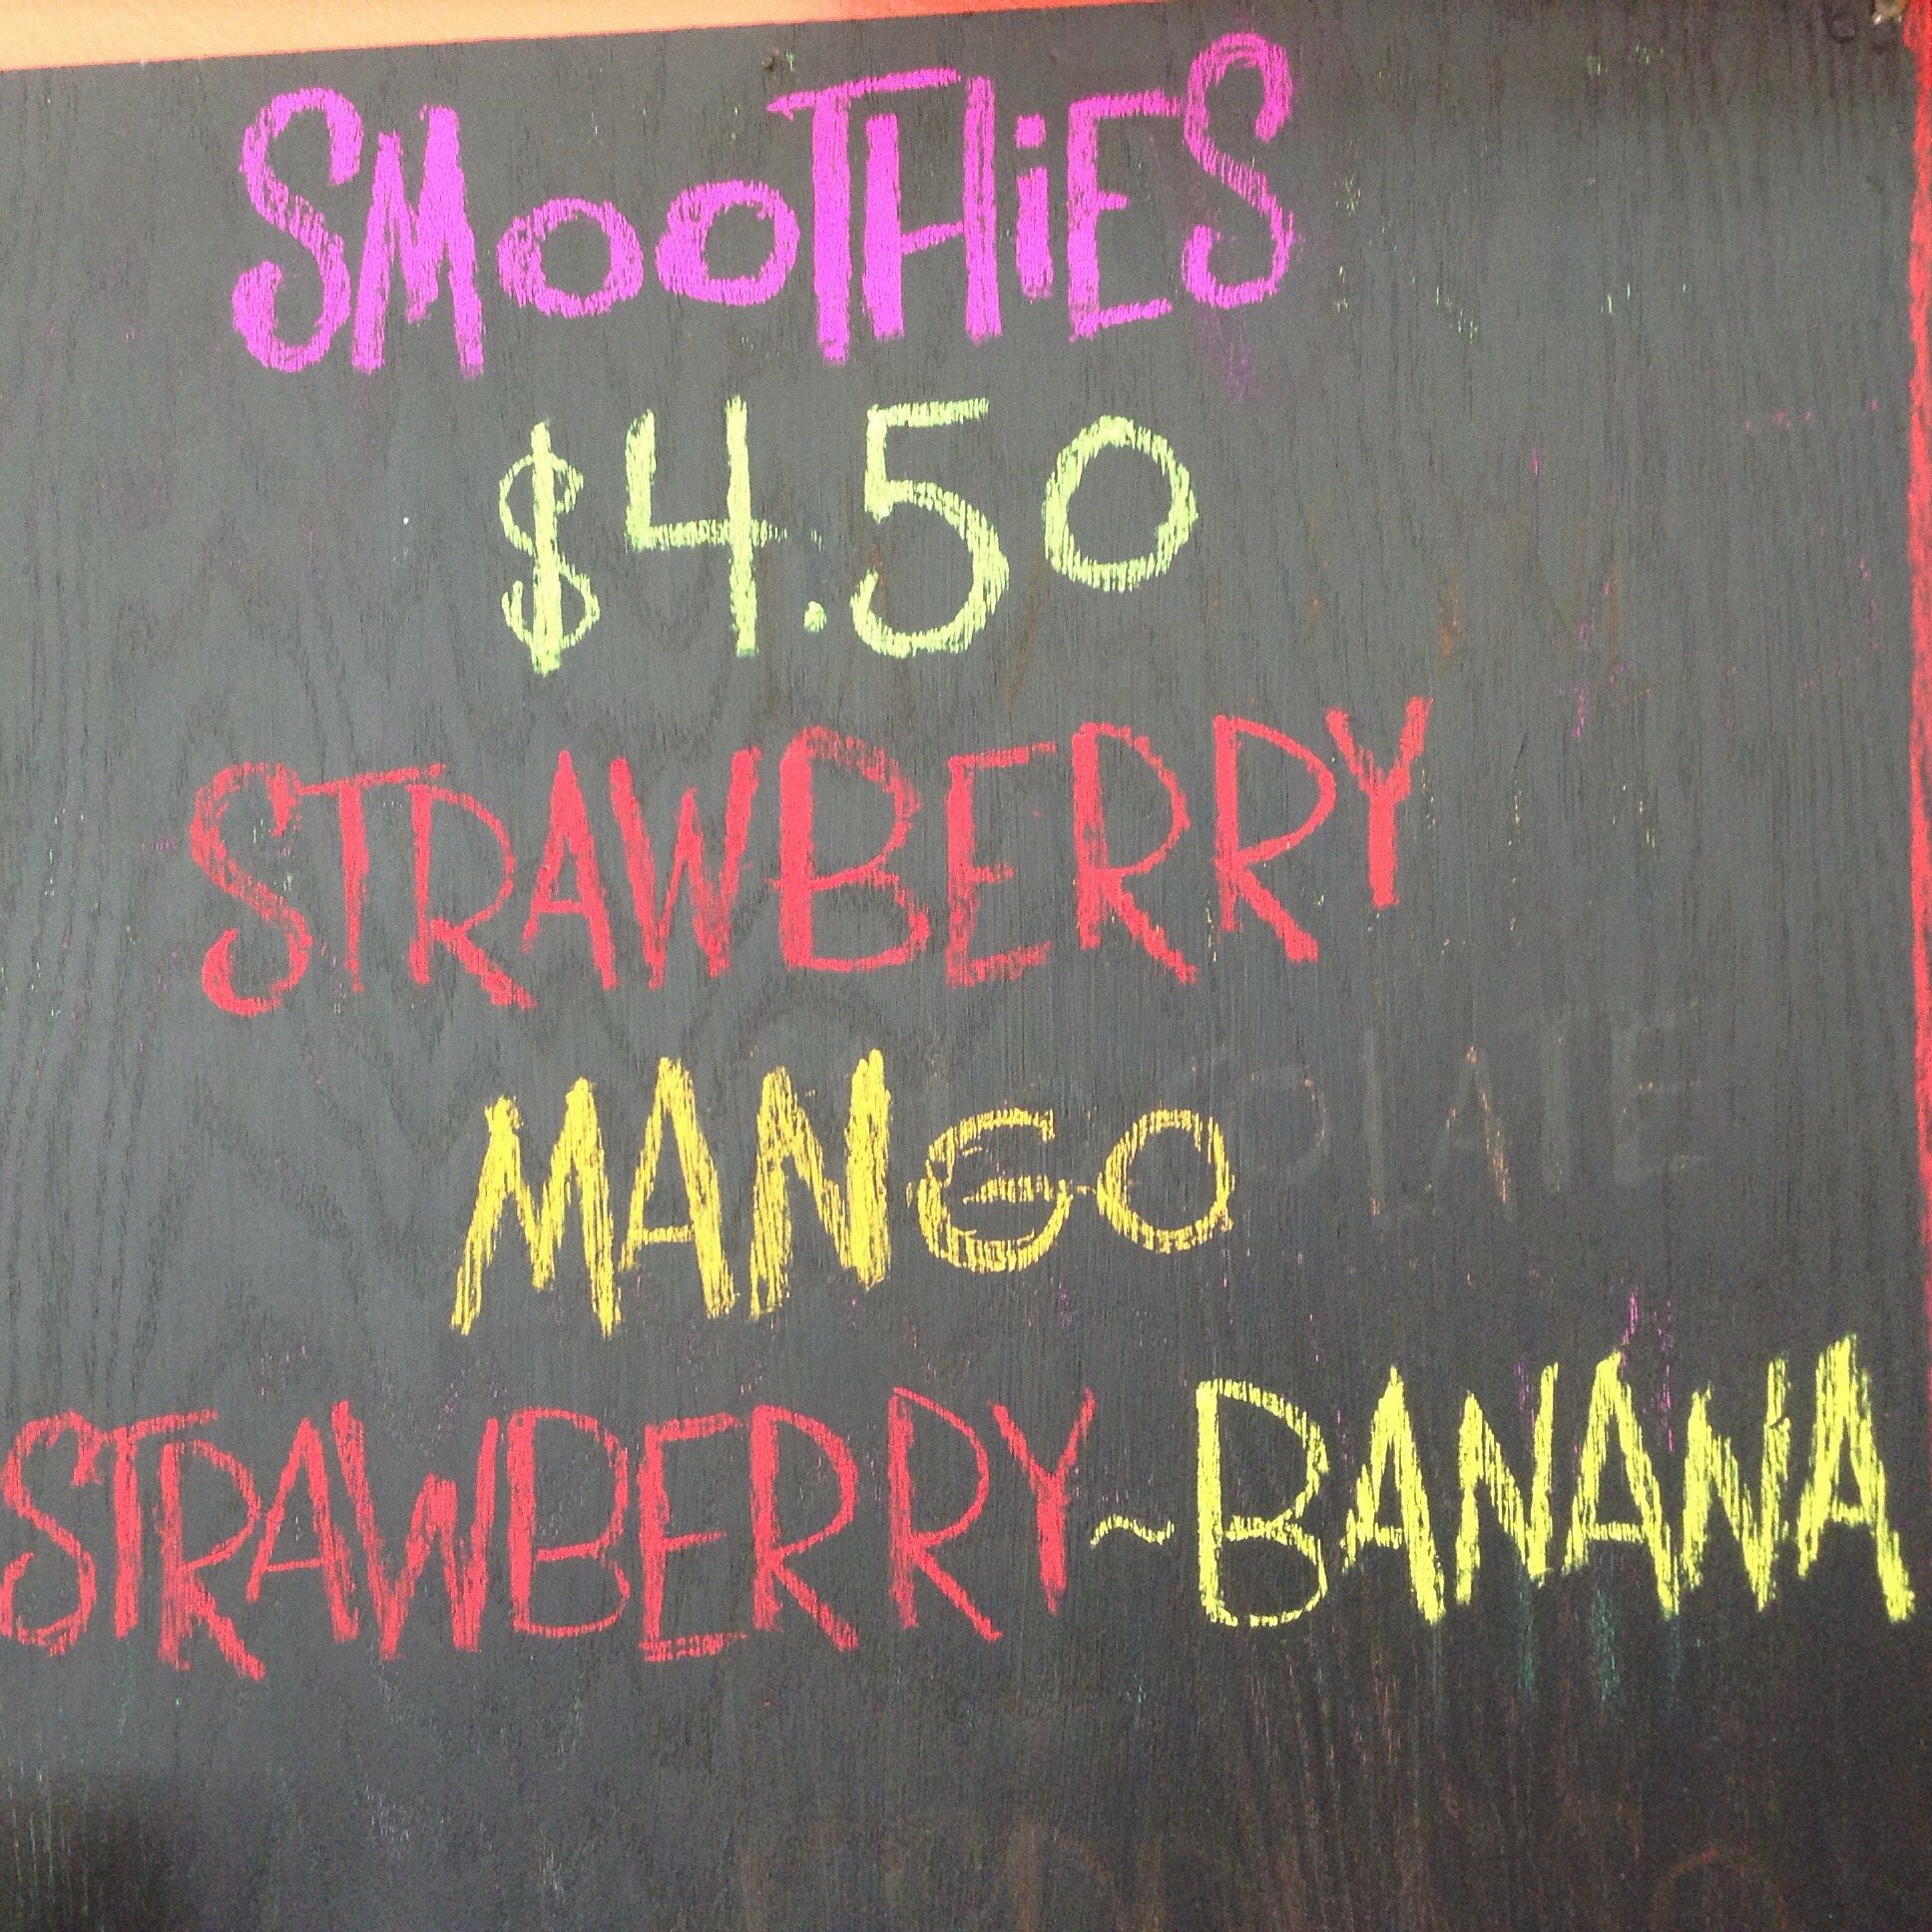 SMOOTHiES
$4.50
STRAWBERRY
MANGO
STRAWBERRY~BANANA